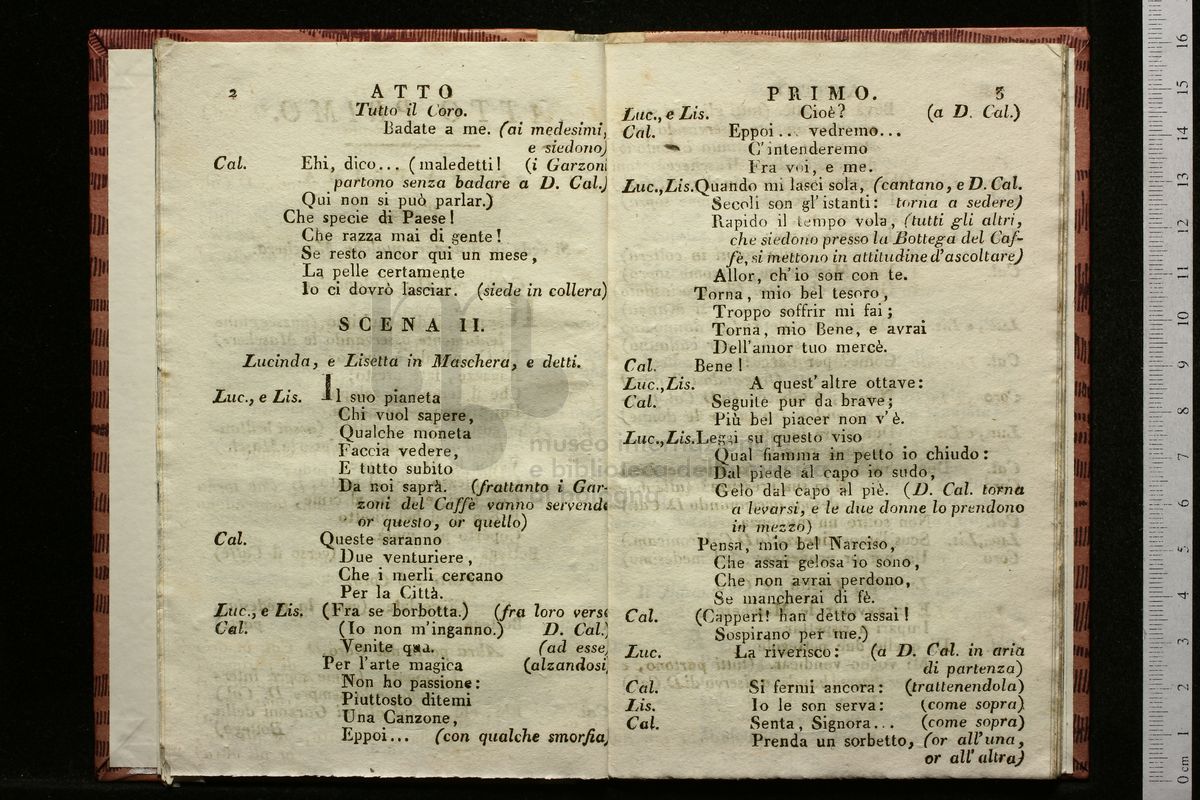 2
ATTO
Tutto il Coro.
Badate a me. (ai medesimi,
e siedono)
Cal. Ehi, dico... (maledetti! (i Garzoni
partono senza badare a D. Cal.)
Qui non si può parlar.)
Che specie di Paese!
Che razza mai di gente!
Se resto ancor qui un mese,
La pelle certamente
Io ci dovrò lasciar. (siede in collera)
SCENA II.
Lucinda, e Lisetta in Maschera, e detti.
Luc., e Lis. Il suo pianeta
Chi vuol sapere,
Qualche moneta
Faccia vedere,
E tutto subito
Da noi saprà. (frattanto i Gar-
zoni del Caffè vanno servendo
or questo, or quello)
Cal. Queste saranno
Due venturiere,
Che i merli cercano
Per la Città.
Luc., e Lis. (Fra se borbotta.) (fra loro verso
Cal. (Io non m'inganno.) D. Cal.)
Venite qua. (ad esse)
Per l'arte magica (alzandosi)
Non ho passione:
Piuttosto ditemi
Una Canzone,
Eppoi... (con qualche smorfia)
PRIMO. 3
Luc., e Lis. Cioè? (a D. Cal.)
Cal. Eppoi... vedremo...
C'intenderemo
Fra voi, e me.
Luc., Lis. Quando mi lasci sola, (cantano, e D. Cal.
Secoli son gl'istanti: torna a sedere)
Rapido il tempo vola, (tutti gli altri,
che siedono presso la Bottega del Caf-
fè, si mettono in attitudine d'ascoltare)
Allor, ch'io son con te.
Torna, mio bel tesoro,
Troppo soffrir mi fai;
Torna, mio Bene, e avrai
Dell'amor tuo mercè.
Cal. Bene!
Luc., Lis. A quest'altre ottave:
Cal. Seguite pur da brave;
Più bel piacer non v'è.
Luc., Lis. Leggi su questo viso
Qual fiamma in petto io chiudo:
Dal piede al capo io sudo,
Gelo dal capo al piè. (D. Cal. torna
a levarsi, e le due donne lo prendono
in mezzo)
Pensa, mio bel Narciso,
Che assai gelosa io sono,
Che non avrai perdono,
Se mancherai di fè.
Cal. (Capperi! han detto assai!
Sospirano per me.)
Luc. La riverisco: (a D. Cal. in aria
di partenza)
Cal. Si fermi ancora: (trattenendola)
Lis. Io le son serva: (come sopra)
Cal. Senta, Signora... (come sopra)
Prenda un sorbetto, (or all'una,
or all'altra)